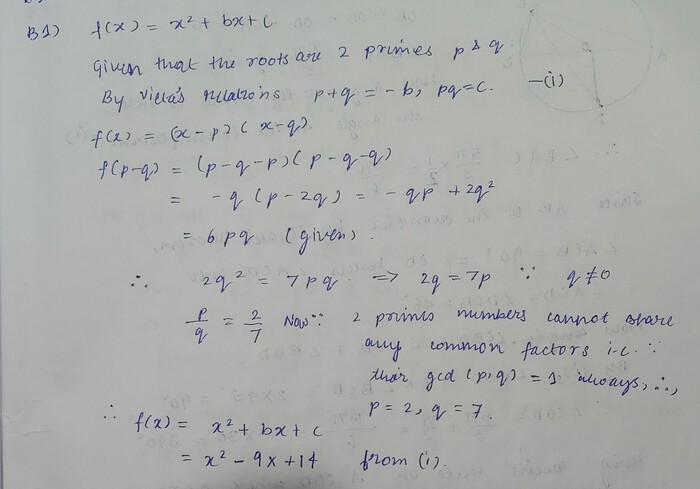 B1) f(x) = x² + bx + c
Given that the roots are 2 primes p & q
By vieta's relations p+q = -b, pq = c. -(i)
f(x) = (x-p)(x-q)
f(p-q) = (p-q-p)(p-q-q)
= -q (p-2q) = -qp + 2q²
= 6pq (given).
∴ 2q² = 7pq => 2q = 7p ∵ q ≠ 0
p/q = 2/7 Now ∵ 2 prime numbers cannot share
any common factors i.e. ∵
their gcd (p,q) = 1 always, ∴,
p = 2, q = 7.
∴ f(x) = x² + bx + c
= x² - 9x + 14 from (i).